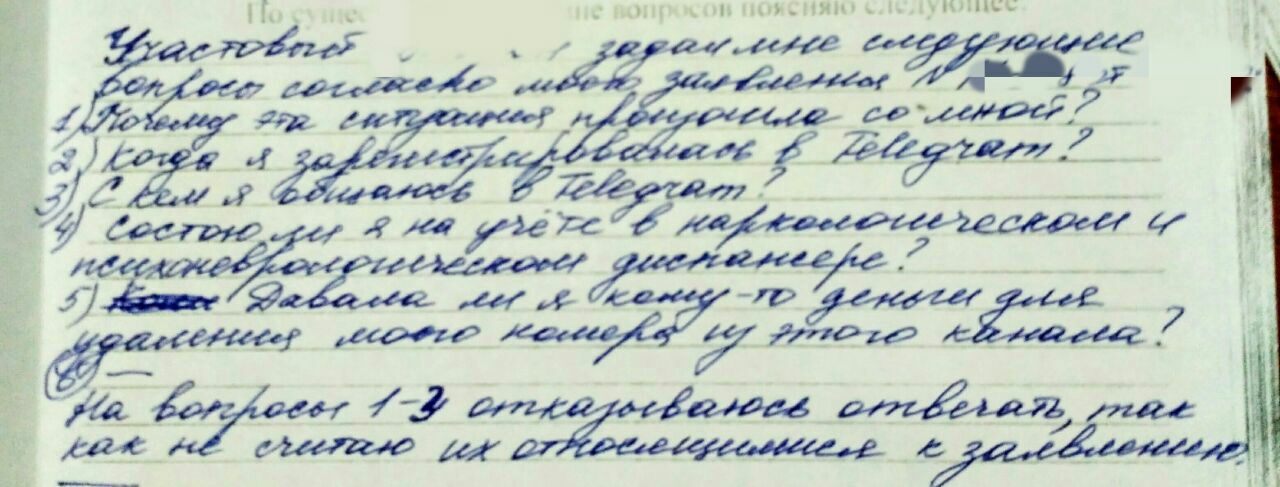 По сущес ние вопросов поясняю следующее:
Участовый задал мне следующие
вопросы согласно моего заявления N
1) Почему эта ситуация произошла со мной?
2) Когда я зарегистрировалась в Telegram?
3) С кем я общаюсь в Telegram?
4) Состою ли я на учёте в наркологическом и
психоневрологическом диспансере?
5) Давала ли я кому-то деньги для
удаления моего номера из этого канала?
6) —
На вопросы 1-3 отказываюсь отвечать, так
как не считаю их относящимися к заявлению.